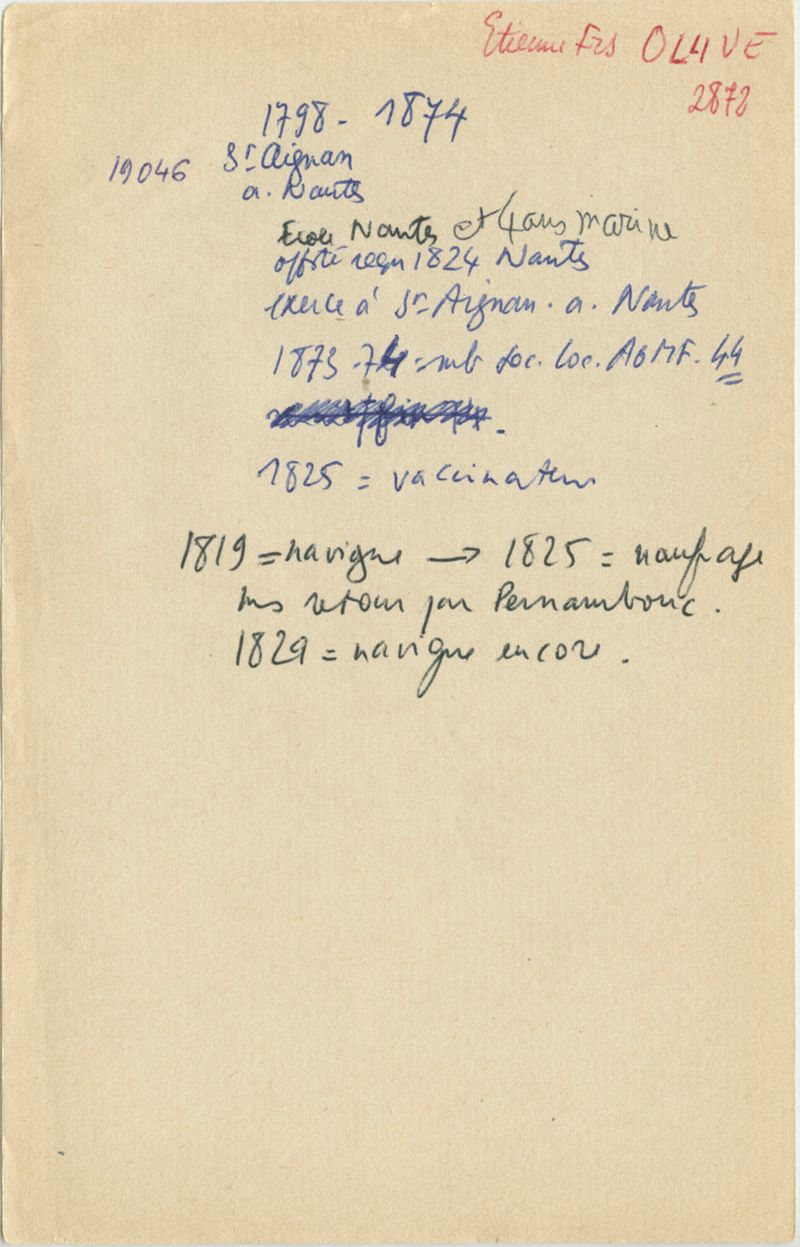 Etienne Frs OLIVE
2872
1798 - 1874
19046 St Aignan
a. Nantes
Ecole Nantes et 4 ans marine
offsté reçu 1824 Nantes
exerce à St-Aignan. a. Nantes
1873-74 = mb Soc. loc. AGMF. 44
1825 = vaccinateur
1819 = navigue → 1825 = naufrage
retour par Pernambouc.
1829 = navigue encore.